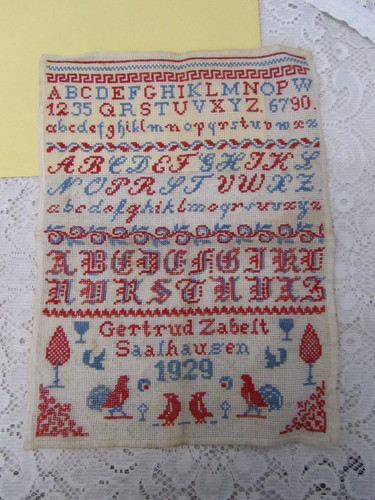 ABCDEFGHIKLMNOPW
1235 QRSTUVXYZ. 6790.
abcdefghiklmnopqrstuvwxz
ABCDEFGHIKLS
NOPRSTUWXZ.
abcdefghiklmnoprsuvxyz
ABCDEFGIKL
NURSTUVXZ
Gertrud Zabelt
Saalhausen
1929